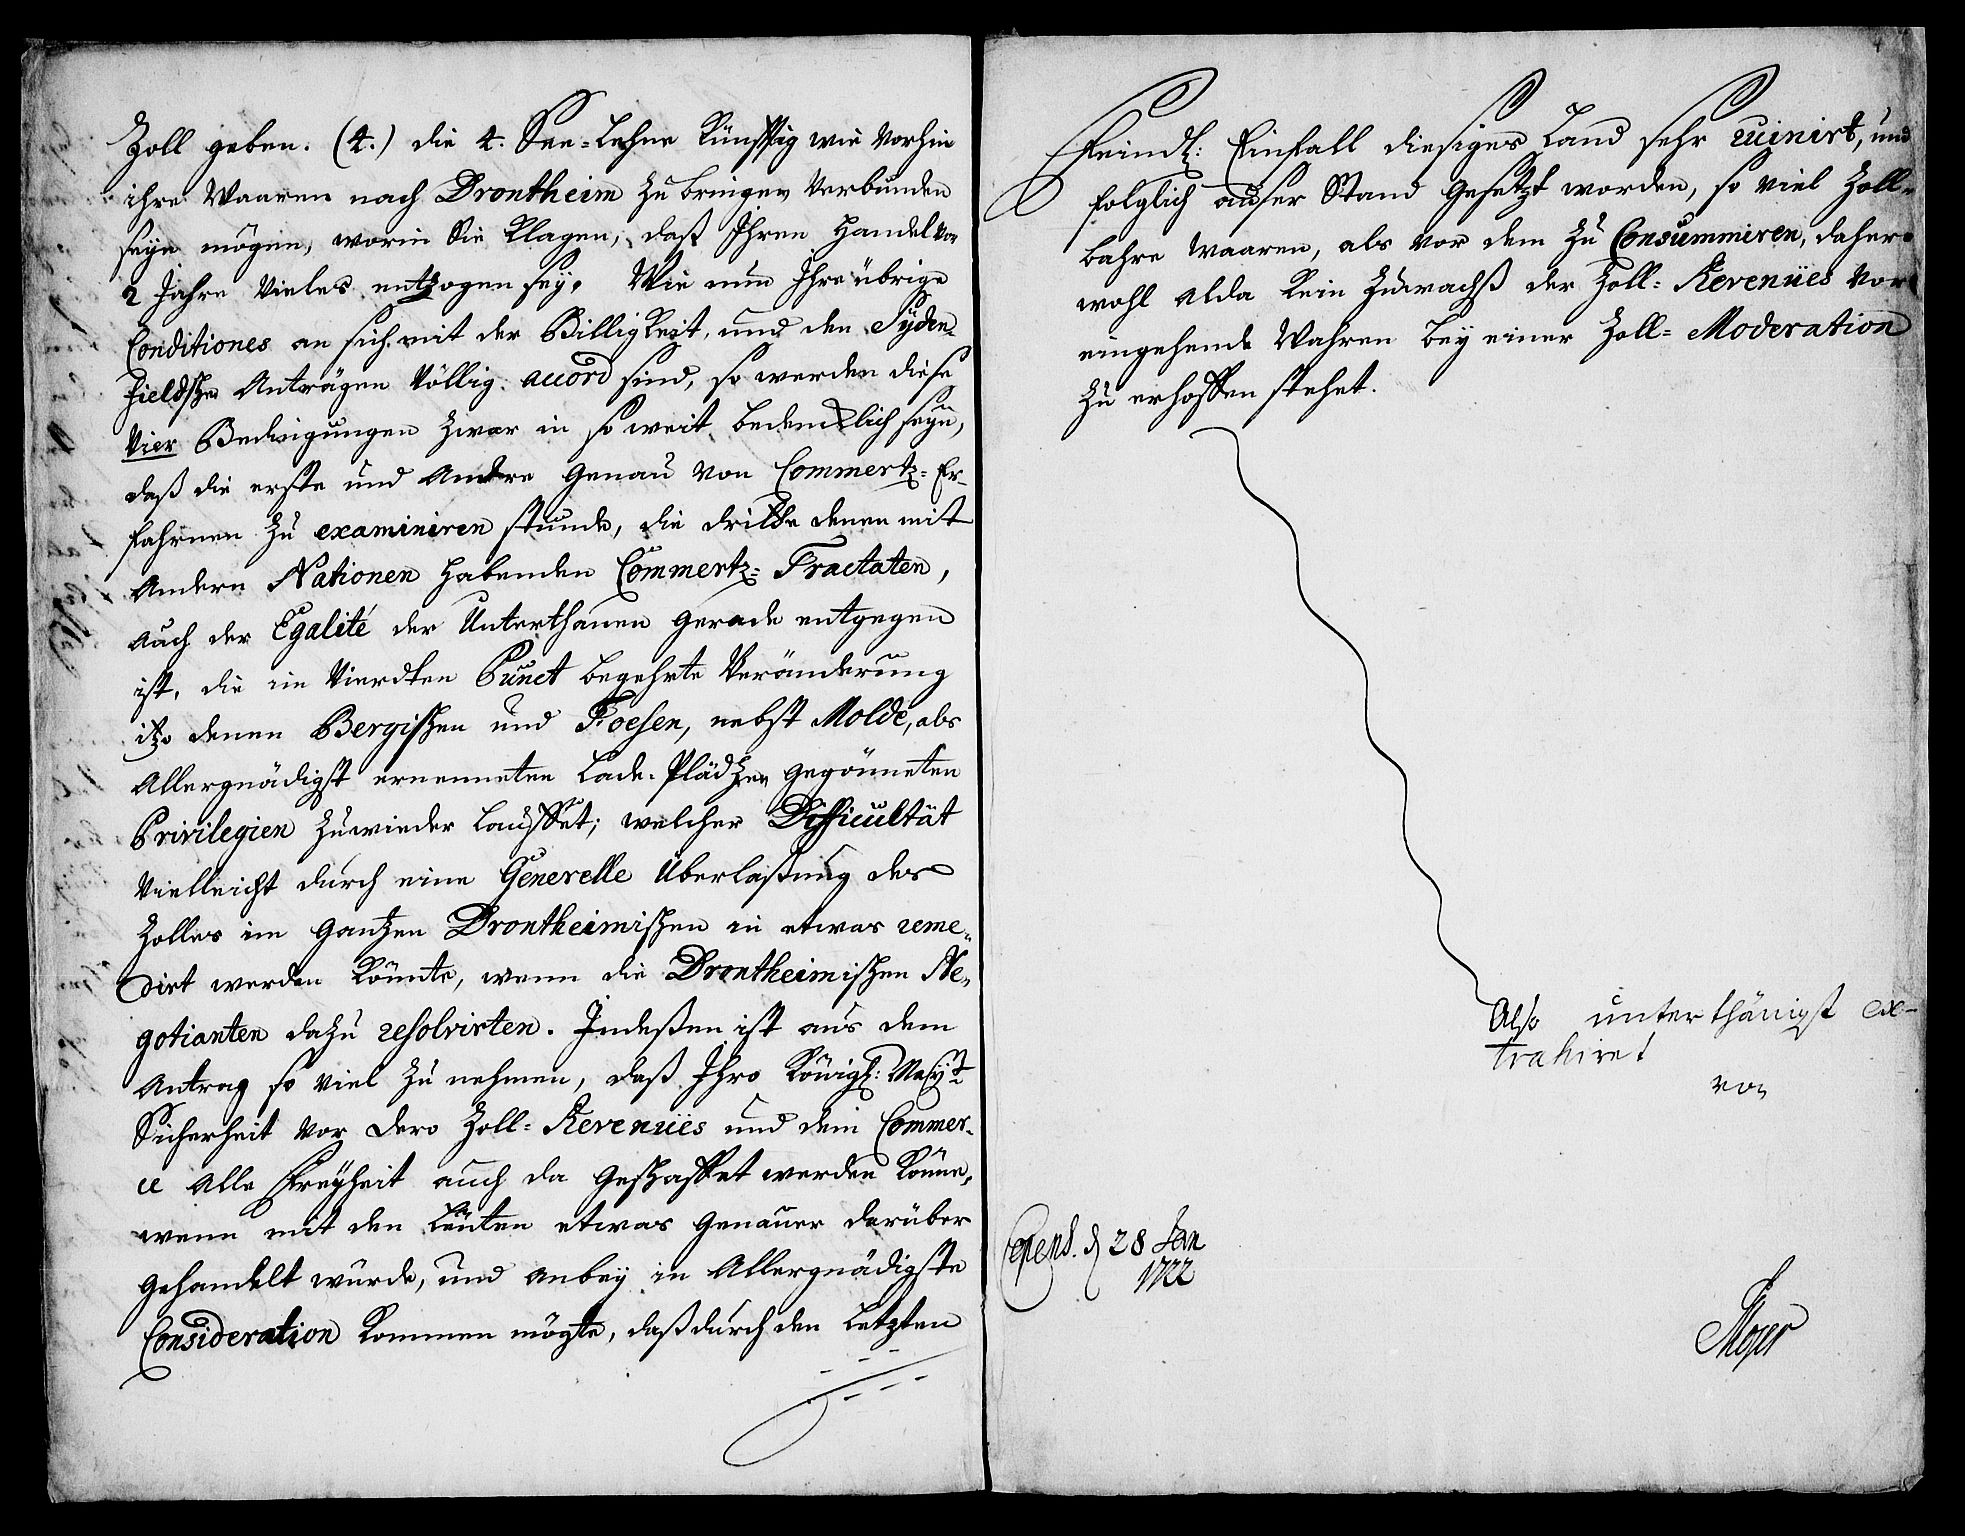 Zoll geben. (4.) die 4. See-Lehne Künfftig wie vorhin
ihre Waaren nach Drontheim zu bringen verbunden
seyn mögen, worin Sie klagen, daß Ihren Handel vor
2 Jahre vieles entzogen sey. Wie nun Ihre übrige
Conditiones an sich mit der Billigkeit, und den Syden-
Fieldschen Anträgen völlig accord sind, so werden diese
Vier Bedingungen zwar in so weit bedencklich seyn,
daß die erste und Andre genau von Commertz-Er-
fahrnen zu examiniren stünde, die dritte denen mit
Andern Nationen habenden Commertz-Tractaten,
auch der Egalité der Unterthanen gerade entgegen
ist, die im Vierdten Punct begehrte Veränderung
itzo denen Bergischen und Foesen, nebst Molde, als
Allergnädigst ernenneten Lade-Plädzen gegönneten
Privilegien zuwieder lauffet; welcher Difficultät
vielleicht durch eine Generelle Überlaßung des
Zolles im gantzen Drontheimischen in etwas reme-
dirt werden könnte, wenn die Drontheimischen Ne-
gotianten dazu resolvirten. Indeßen ist aus dem
Antrag so viel zu nehmen, daß Ihro Königl: Mayt:
Sicherheit vor dero Zoll-Revenües und dem Commer-
ce alle Freyheit auch da geschaffet werden könne,
wenn mit den Leuten etwas genauer darüber
gehandelt würde, und anbey in Allergnädigste
Consideration kommen mögte, daß durch den letzten
Feindl: Einfall diesiges Land sehr ruinirt, und
folglich außer Stand gesetzt worden, so viel Zoll-
bahre waaren, als vor dem zu Consummiren, daher
wohl alda kein Zuwachß der Zoll-Revenües vor
eingehende Wahren bey einer Zoll-Moderation
zu erhoffen stehet.
Also unterthänigst ex-
trahiret
von
Copenh. d 28 Jan
1722